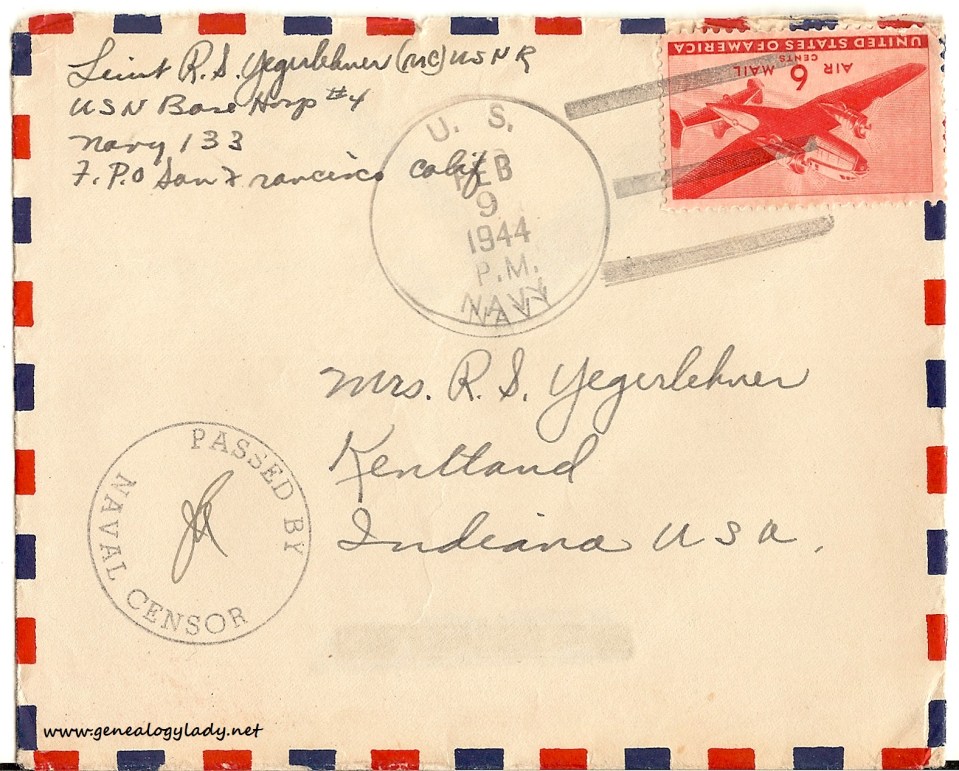 Lieut R. S. Yegerlehner (MC) USNR
USN Base Hosp #4
Navy 133
F.P.O San Francisco Calif
UNITED STATES OF AMERICA
6 CENTS
AIR MAIL
U. S.
FEB
9
1944
P.M.
NAVY
Mrs. R. S. Yegerlehner
Kentland
Indiana U S A.
PASSED BY
NAVAL CENSOR
www.genealogylady.net